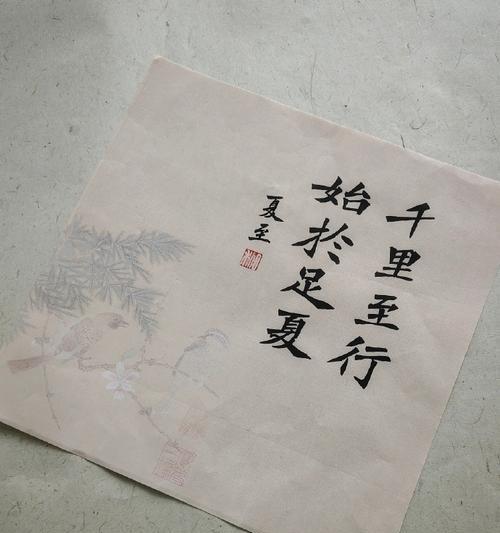 千里至行
始於足夏
夏至